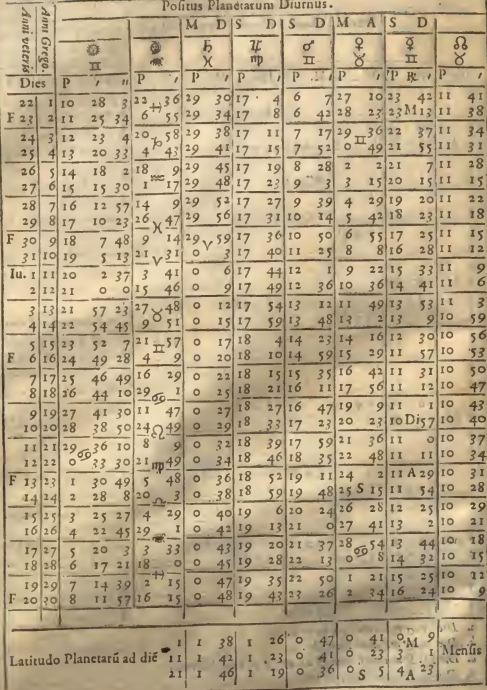 Positus Planetarum Diurnus.
Anni veteris Anni Grego. ☉ ♊ M D ♄ ♓ S D ♃ ♍ S D ♂ ♊ M A ♀ ♉ S D ☿ ♊ ☊ ♉
Dies P ′ ″ P ′ P ′ P ′ P ′ P ′ P ℞ ′ P ′
22 1 10 28 3 22 ♐ 36 29 30 17 4 6 7 27 10 23 42 11 41
F 23 2 11 25 34 6 55 29 34 17 8 6 42 28 23 23 M 13 11 38
24 3 12 23 4 20 ♑ 58 29 38 17 11 7 17 29 ♊ 36 22 37 11 34
25 4 13 20 33 4 43 29 41 17 15 7 52 0 49 21 55 11 31
26 5 14 18 2 18 ♒ 9 29 45 17 19 8 28 2 2 21 7 11 28
27 6 15 15 30 1 17 29 48 17 23 9 3 3 15 20 15 11 25
28 7 16 12 57 14 9 29 52 17 27 9 39 4 29 19 20 11 22
29 8 17 10 23 26 ♓ 47 29 56 17 31 10 14 5 42 18 23 11 18
F 30 9 18 7 48 9 14 29 ♈ 59 17 36 10 50 6 55 17 25 11 15
31 10 19 5 13 21 ♈ 31 0 3 17 40 11 25 8 8 16 28 11 12
Iu. 1 11 20 2 37 3 41 0 6 17 44 12 1 9 22 15 33 11 9
2 12 21 0 0 15 46 0 9 17 49 12 36 10 36 14 41 11 6
3 13 21 57 23 27 ♉ 48 0 12 17 54 13 12 11 49 13 53 11 3
4 14 22 54 45 9 51 0 15 17 59 13 48 13 2 13 9 10 59
5 15 23 52 7 21 ♊ 57 0 17 18 4 14 23 14 16 12 30 10 56
F 6 16 24 49 28 4 9 0 20 18 10 14 59 15 29 11 57 10 53
7 17 25 46 49 16 29 0 22 18 15 15 35 16 42 11 31 10 50
8 18 26 44 10 29 ♋ 1 0 25 18 21 16 11 17 56 11 12 10 47
9 19 27 41 30 11 47 0 27 18 27 16 47 19 9 11 1 10 43
10 20 28 38 50 24 ♌ 49 0 29 18 33 17 23 20 23 10 Di 57 10 40
11 21 29 ♋ 36 10 8 9 0 32 18 39 17 59 21 36 11 0 10 37
12 22 0 33 30 21 ♍ 49 0 34 18 46 18 35 22 48 11 11 10 34
F 13 23 1 30 49 5 48 0 36 18 52 19 11 24 2 11 A 29 10 31
14 24 2 28 8 20 ♎ 3 0 38 18 59 19 48 25 S 15 11 54 10 28
15 25 3 25 27 4 29 0 40 19 6 20 24 26 28 12 25 10 29
16 26 4 22 45 29 ♏ 1 0 42 19 13 21 0 27 41 13 2 10 21
17 27 5 20 3 3 33 0 43 19 20 21 37 28 ♋ 54 13 44 10 18
18 28 6 17 21 18 ♐ 0 0 45 19 28 22 13 0 8 14 32 10 15
19 29 7 14 39 2 15 0 47 19 35 22 50 1 21 15 25 10 12
F 20 30 8 11 57 16 15 0 48 19 43 23 26 2 34 16 24 10 9
1 1 38 1 26 0 47 0 41 0 M 9
Latitudo Planetarū ad diē 11 1 42 1 23 0 41 0 23 3 1 Mensis
21 1 46 1 19 0 36 0 S 5 4 A 23